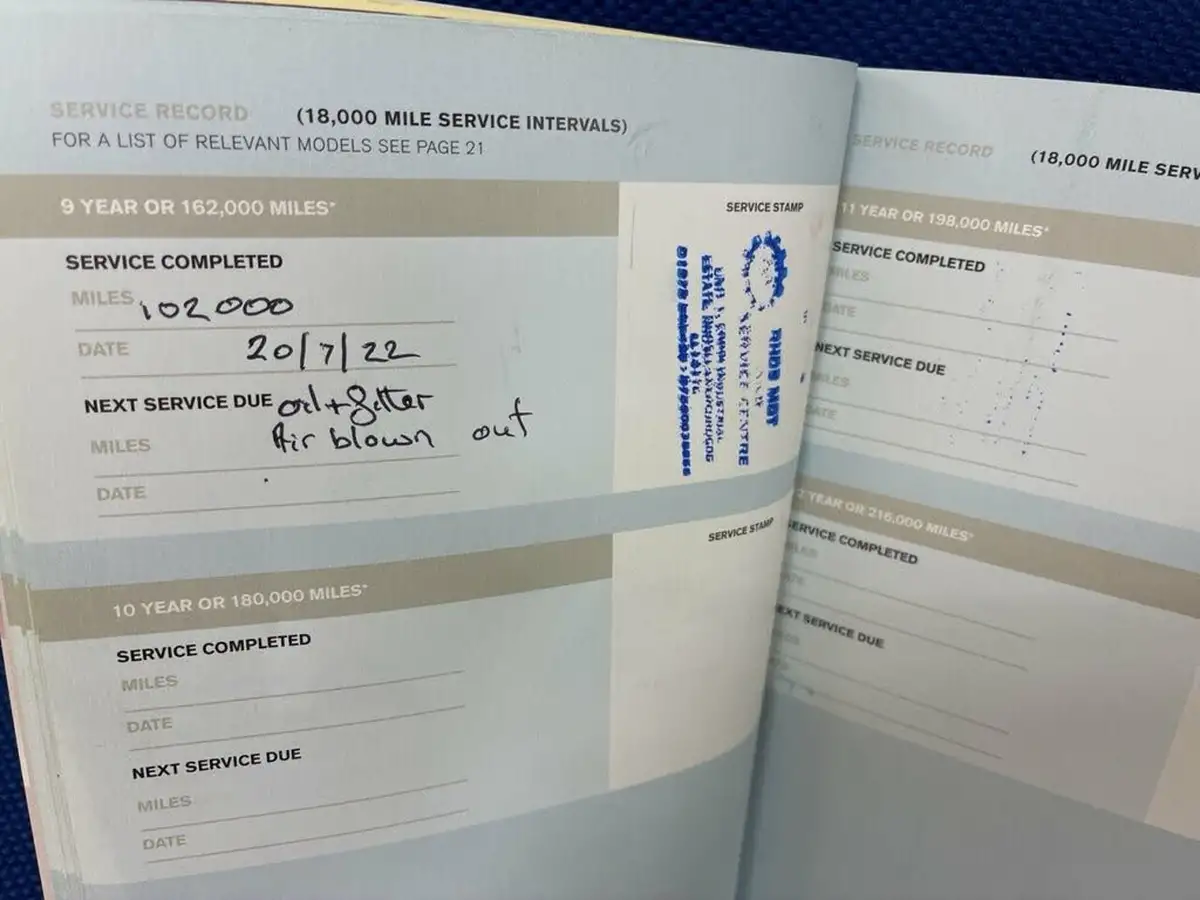 SERVICE RECORD (18,000 MILE SERVICE INTERVALS)
FOR A LIST OF RELEVANT MODELS SEE PAGE 21
9 YEAR OR 162,000 MILES*
SERVICE STAMP
SERVICE COMPLETED
MILES 102000
DATE 20/7/22
NEXT SERVICE DUE oil + filter
Air blown out
MILES
DATE
MOT
AND
SERVICE CENTRE
INDUSTRIAL
ESTATE
10 YEAR OR 180,000 MILES*
SERVICE STAMP
SERVICE COMPLETED
MILES
DATE
NEXT SERVICE DUE
MILES
DATE
SERVICE RECORD (18,000 MILE SERV
11 YEAR OR 198,000 MILES*
SERVICE COMPLETED
MILES
DATE
NEXT SERVICE DUE
MILES
DATE
2 YEAR OR 216,000 MILES*
SERVICE COMPLETED
EXT SERVICE DUE